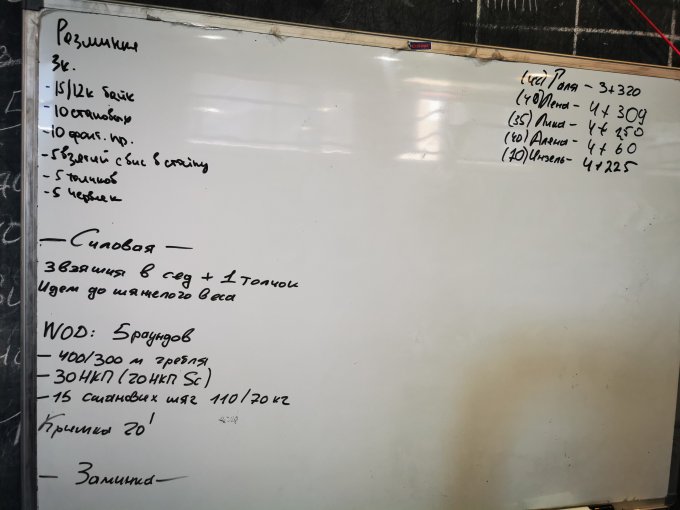 Разминка
3к.
- 15/12к байк
- 10 становых
- 10 фронт. пр.
- 5 взятий с вис в стойку
- 5 толчков
- 5
— Силовая —
3 взятия в сед + 1 толчок
Идем до тяжелого веса
WOD: 5 раундов
- 400/300 м гребля
- 30 НКП (20 НКП Sc)
- 15 становых тяг 110/70 кг
Крышка 20'
— Заминка —
(42) Поля - 3+320
(40) Лена - 4+309
(35) Лика - 4+250
(40) Алена - 4+60
(70) - 4+225